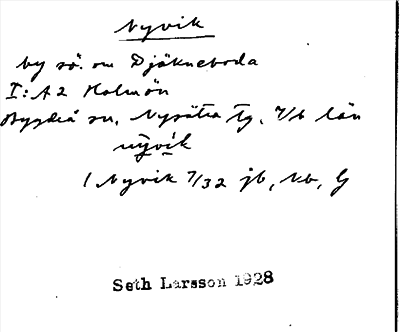 Nyvik
by sö. om Djäkneboda
I: A2 Holmön
Bygdeå sn, Nysätra tg, V/b län
nȳvik
1 Nyvik 7/32 jb, kb, G
Seth Larsson 1928